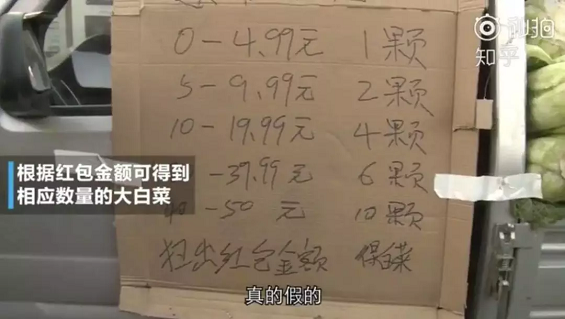 秒拍
知乎
0-4.99元 1颗
5-9.99元 2颗
10-19.99元 4颗
-39.99元 6颗
根据红包金额可得到
相应数量的大白菜
-50元 10颗
红包金额 白菜
真的假的